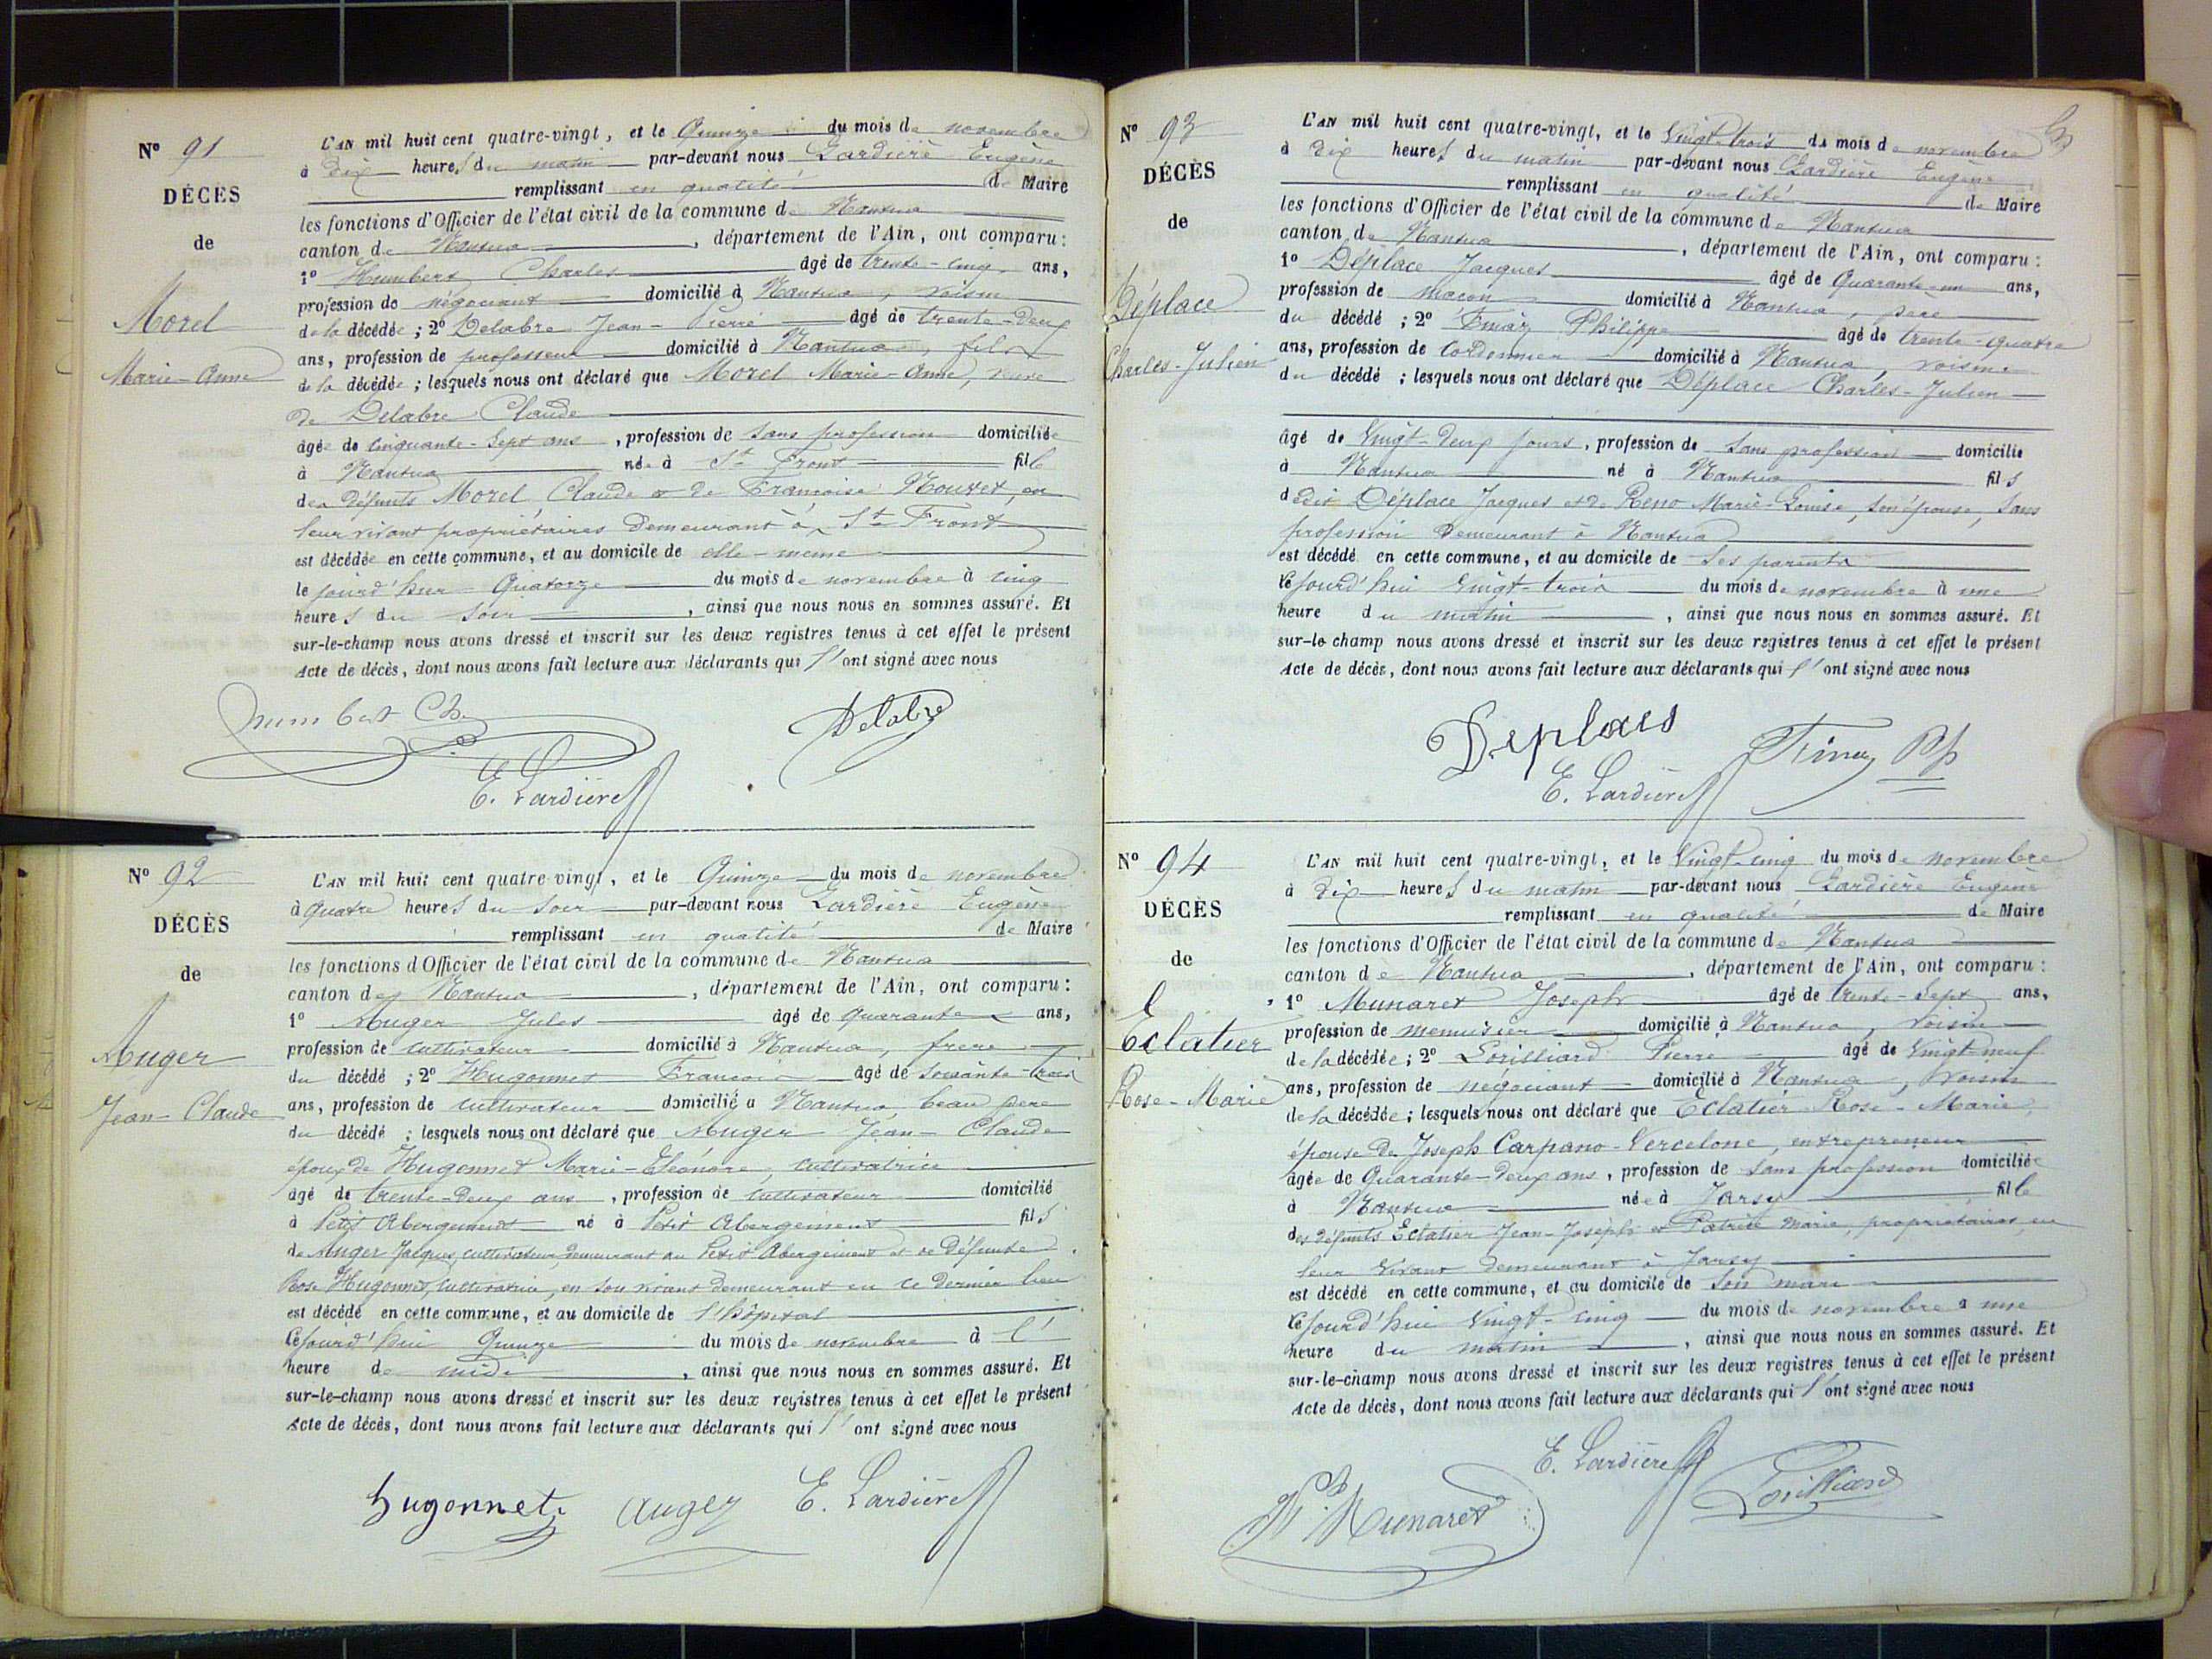 N° 91
DÉCÈS
de
Morel
Marie-Anne
L'AN mil huit cent quatre-vingt, et le Quinze du mois de novembre
à Dix heures du matin par-devant nous Lardière Eugène
remplissant en qualité de Maire
les fonctions d'Officier de l'état civil de la commune de Nantua
canton de Nantua, département de l'Ain, ont comparu:
1° Humbert Charles âgé de trente-cinq ans,
profession de négociant domicilié à Nantua, voisin
de la décédée; 2° Delabre Jean-Pierre âgé de trente-deux
ans, profession de professeur domicilié à Nantua, fils
de la décédée; lesquels nous ont déclaré que Morel Marie-Anne, veuve
de Delabre Claude
âgée de cinquante-sept ans, profession de sans profession domiciliée
à Nantua née à St Front fille
des défunts Morel Claude et de Françoise Mouret, en
leur vivant propriétaires demeurant à St Front
est décédée en cette commune, et au domicile de elle-même
le jourd'hui Quatorze du mois de novembre à cinq
heures du soir, ainsi que nous nous en sommes assuré. Et
sur-le-champ nous avons dressé et inscrit sur les deux registres tenus à cet effet le présent
Acte de décès, dont nous avons fait lecture aux déclarants qui l'ont signé avec nous
Humbert Ch. Delabre
E. Lardière
N° 92
DÉCÈS
de
Auger
Jean-Claude
L'AN mil huit cent quatre-vingt, et le Quinze du mois de novembre
à Quatre heures du soir par-devant nous Lardière Eugène
remplissant en qualité de Maire
les fonctions d'Officier de l'état civil de la commune de Nantua
canton de Nantua, département de l'Ain, ont comparu:
1° Auger Jules âgé de quarante ans,
profession de cultivateur domicilié à Nantua, frère
du décédé; 2° Hugonnet François âgé de soixante-trois
ans, profession de cultivateur domicilié à Nantua, beau père
du décédé; lesquels nous ont déclaré que Auger Jean-Claude
époux de Hugonnet Marie-Eléonore, cultivatrice
âgé de trente-deux ans, profession de cultivateur domicilié
à Petit Abergement né à Petit Abergement fils
de Auger Jacques, cultivateur, demeurant au Petit Abergement et de défunte
Rose Hugonnet, cultivatrice, en son vivant demeurant en ce dernier lieu
est décédé en cette commune, et au domicile de l'hôpital
Cejourd'hui Quinze du mois de novembre à l'
heure de midi, ainsi que nous nous en sommes assuré. Et
sur-le-champ nous avons dressé et inscrit sur les deux registres tenus à cet effet le présent
Acte de décès, dont nous avons fait lecture aux déclarants qui l'ont signé avec nous
hugonnet auger E. Lardière
N° 93
DÉCÈS
de
Déplace
Charles-Julien
L'AN mil huit cent quatre-vingt, et le Vingt-trois du mois de novembre
à Dix heures du matin par-devant nous Lardière Eugène
remplissant en qualité de Maire
les fonctions d'Officier de l'état civil de la commune de Nantua
canton de Nantua, département de l'Ain, ont comparu:
1° Déplace Jacques âgé de Quarante-un ans,
profession de maçon domicilié à Nantua, père
du décédé; 2° Philippe âgé de trente-quatre
ans, profession de cordonnier domicilié à Nantua, voisin
du décédé; lesquels nous ont déclaré que Déplace Charles-Julien
âgé de Vingt-deux jours, profession de sans profession domicilié
à Nantua né à Nantua fils
dedit Déplace Jacques et de Reno Marie-Louise, son épouse, sans
profession demeurant à Nantua
est décédé en cette commune, et au domicile de ses parents
Cejourd'hui Vingt-trois du mois de novembre à une
heure du matin, ainsi que nous nous en sommes assuré. Et
sur-le champ nous avons dressé et inscrit sur les deux registres tenus à cet effet le présent
Acte de décès, dont nous avons fait lecture aux déclarants qui l'ont signé avec nous
Deplaces
E. Lardière
N° 94
DÉCÈS
de
Eclatier
Rose-Marie
L'AN mil huit cent quatre-vingt, et le Vingt-cinq du mois de novembre
à Dix heures du matin par-devant nous Lardière Eugène
remplissant en qualité de Maire
les fonctions d'Officier de l'état civil de la commune de Nantua
canton de Nantua, département de l'Ain, ont comparu:
1° Munaret Joseph âgé de trente-sept ans,
profession de menuisier domicilié à Nantua, voisin
de la décédée; 2° Lorilliard Pierre âgé de Vingt-neuf
ans, profession de négociant domicilié à Nantua, voisin
de la décédée; lesquels nous ont déclaré que Eclatier Rose-Marie,
épouse de Joseph Carpano-Vercelone, entrepreneur
âgée de Quarante-deux ans, profession de sans profession domiciliée
à Nantua née à Jarsy fille
des défunts Eclatier Jean-Joseph et Patrice Marie, propriétaires en
leur vivant demeurant à Jarsy
est décédé en cette commune, et au domicile de son mari
Cejourd'hui Vingt-cinq du mois de novembre à une
heure du matin, ainsi que nous nous en sommes assuré. Et
sur-le-champ nous avons dressé et inscrit sur les deux registres tenus à cet effet le présent
Acte de décès, dont nous avons fait lecture aux déclarants qui l'ont signé avec nous
E. Lardière
Munaret Lorilliard